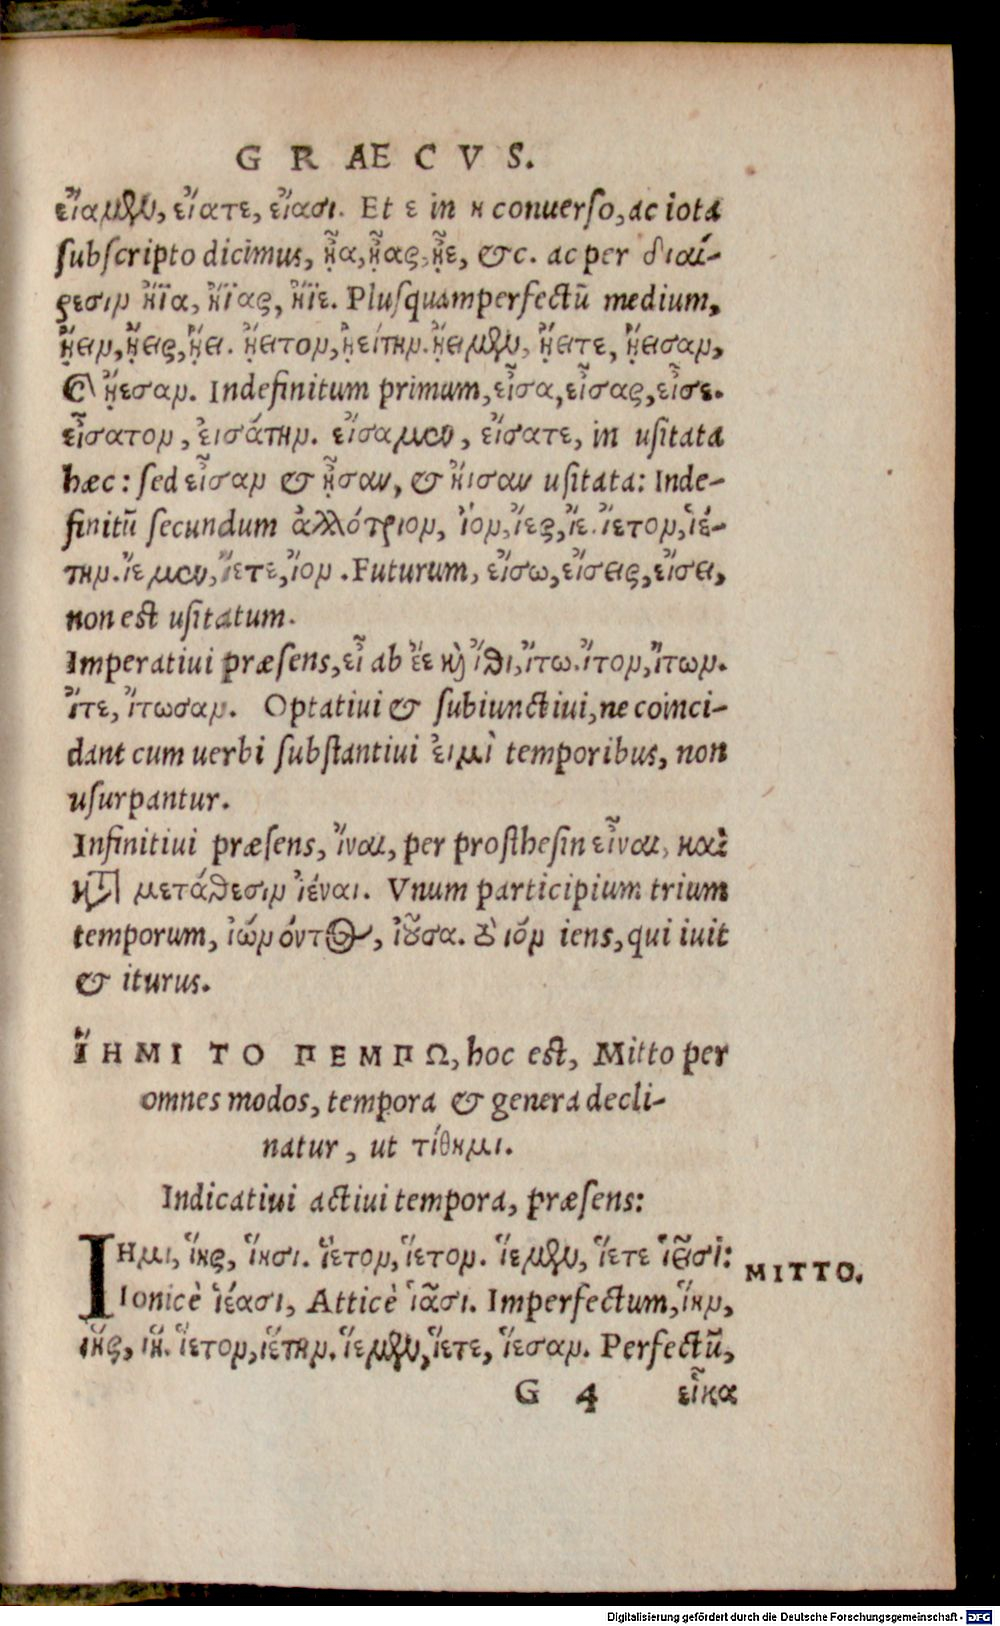 GRAECVS.
εἴαμεν, εἴατε, εἴασι. Et ε in η conuerso, ac iota
subscripto dicimus, ᾖα, ᾖας, ᾖε, &c. ac per διαί-
ρεσιν ἤϊα, ἤϊας, ἤϊε. Plusquamperfectū medium,
ᾔειν, ᾔεις, ᾔει. ᾔειτον, ᾐείτην. ᾔειμεν, ᾔειτε, ᾔεισαν,
& ᾔεσαν. Indefinitum primum, εἶσα, εἶσας, εἶσε.
εἶσατον, εἰσάτην. εἴσαμεν, εἴσατε, inusitata
hæc: sed εἶσαν & ᾖσαν, & ἤισαν usitata: Inde-
finitū secundum ἀλλότριον, ἰον, ἴες, ἴε. ἴετον, ἰέ-
την. ἴεμεν, ἴετε, ἴον. Futurum, εἴσω, εἴσεις, εἴσει,
non est usitatum.
Imperatiui præsens, εἶ ab ἔε καὶ ἴθι, ἴτω. ἴτον, ἴτων.
ἴτε, ἴτωσαν. Optatiui & subiunctiui, ne coinci-
dant cum uerbi substantiui εἰμὶ temporibus, non
usurpantur.
Infinitiui præsens, ἴναι, per prosthesin εἶναι, καὶ
κατὰ μετάθεσιν ἰέναι. Vnum participium trium
temporum, ἰὼν όντος, ἰοῦσα. τὸ ιὸν iens, qui iuit
& iturus.
ἽΗΜΙ ΤΟ ΠΕΜΠΩ, hoc est, Mitto per
omnes modos, tempora & genera decli-
natur, ut τίθημι.
Indicatiui actiui tempora, præsens:
Ιημι, ἵης, ἵησι. ἵετον, ἵετον. ἵεμεν, ἵετε ἱεῖσί:
MITTO.
Ionicè ἱέασι, Atticè ἱᾶσι. Imperfectum, ἵην,
ἵης, ἵη. ἵετον, ἱέτην. ἵεμεν, ἵετε, ἵεσαν. Perfectū,
G 4 εἷκα
Digitalisierung gefördert durch die Deutsche Forschungsgemeinschaft - DFG